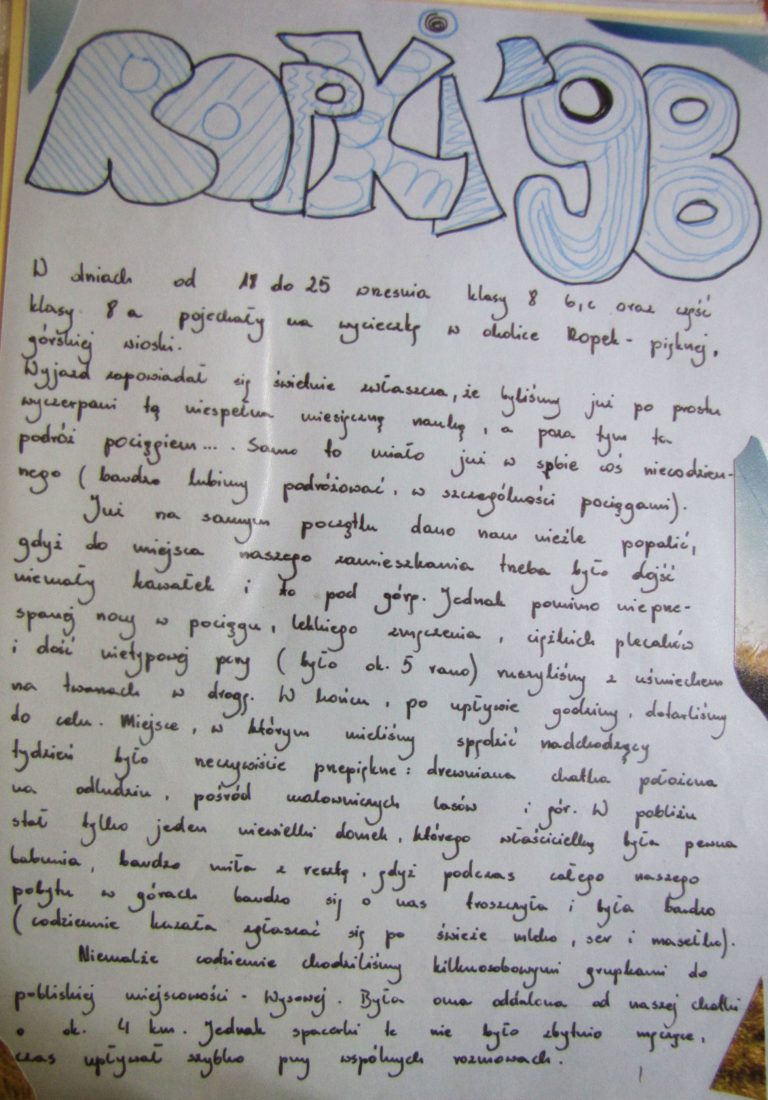 ROPKI '98
W dniach od 18 do 25 wresnia klasy 8 b, c oraz część
klasy 8 a pojechały na wycieczkę w okolice Ropek - pięknej,
górskiej wioski.
Wyjazd zapowiadał się świetnie zwłaszcza, że byliśmy już po prostu
wyczerpani tą niespełna miesięczną nauką, a poza tym ta
podróż pociągiem... . Samo to miało już w sobie coś niecodzien-
nego (bardzo lubimy podróżować, w szczególności pociągami).
Już na samym początku dano nam nieźle popalić,
gdyż do miejsca naszego zamieszkania trzeba było dojść
niemały kawałek i to pod górę. Jednak pomimo nieprze-
spanej nocy w pociągu, lekkiego zmęczenia, ciężkich plecaków
i dość nietypowej pory (było ok. 5 rano) ruszyliśmy z uśmiechem
na twarzach w drogę. W końcu, po upływie godziny, dotarliśmy
do celu. Miejsce, w którym mieliśmy spędzić nadchodzący
tydzień było rzeczywiście przepiękne: drewniana chatka położona
na odludziu, pośród malowniczych lasów i gór. W pobliżu
stał tylko jeden niewielki domek, którego właścicielką była pewna
babunia, bardzo miła z resztą, gdyż podczas całego naszego
pobytu w górach bardzo się o nas troszczyła i była bardzo
(codziennie kazała zgłaszać się po świeże mleko, ser i masełko).
Niemalże codziennie chodziliśmy kilkuosobowymi grupkami do
pobliskiej miejscowości - Wysowej. Była ona oddalona od naszej chatki
o ok. 4 km. Jednak spacerki te nie było zbytnio męczące,
czas upływał szybko przy wspólnych rozmowach.